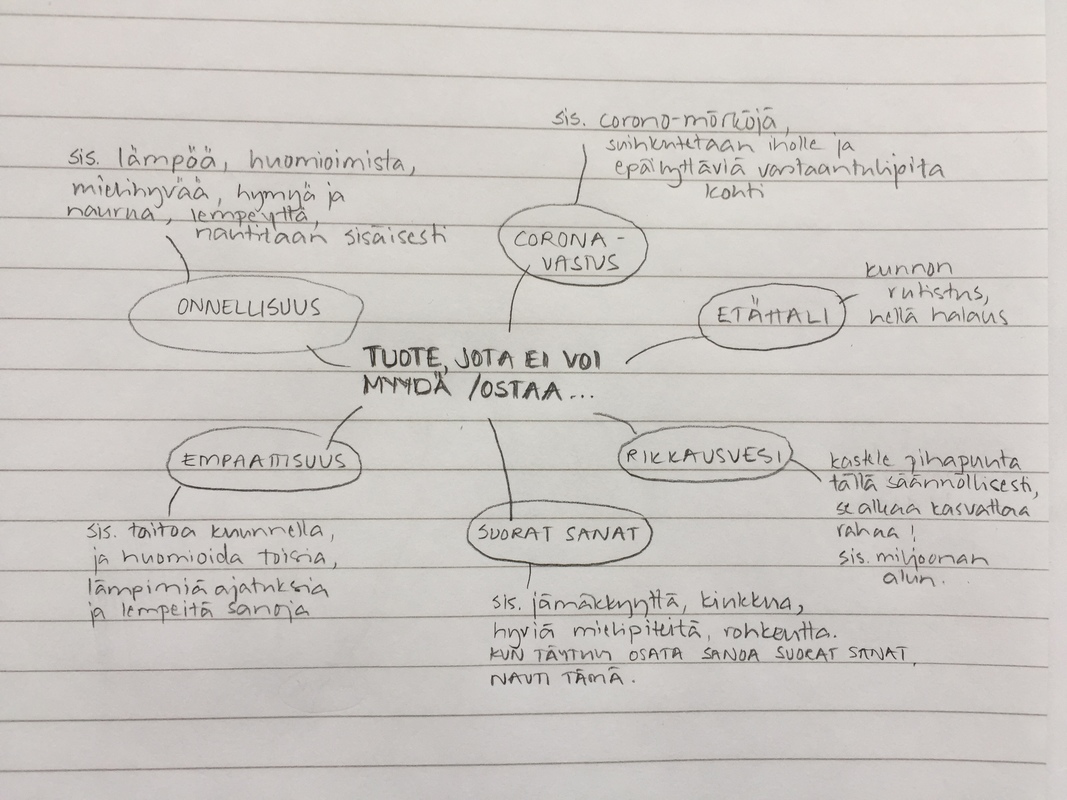 sis. corono-mörköjä,
suihkutetaan iholle ja
epäilyttäviä vastaantulijoita
kohti
CORONA-
VASTUS
sis. lämpöä, huomioimista,
mielihyvää, hymyjä ja
naurua, lempeyttä,
nautitaan sisäisesti
ONNELLISUUS
kunnon
rutistus,
hellä halaus
ETÄHALI
TUOTE, JOTA EI VOI
MYYDÄ /OSTAA...
EMPAATTISUUS
sis. taitoa kuunnella,
ja huomioida toisia,
lämpimiä ajatuksia
ja lempeitä sanoja
SUORAT SANAT
sis. jämäkkyyttä, kinkkua,
hyviä mielipiteitä, rohkeutta.
KUN TÄYTYY OSATA SANOA SUORAT SANAT,
NAUTI TÄMÄ.
RIKKAUSVESI
kastele pihapuuta
tällä säännöllisesti,
se alkaa kasvattaa
rahaa!
sis. miljoonan
alun.